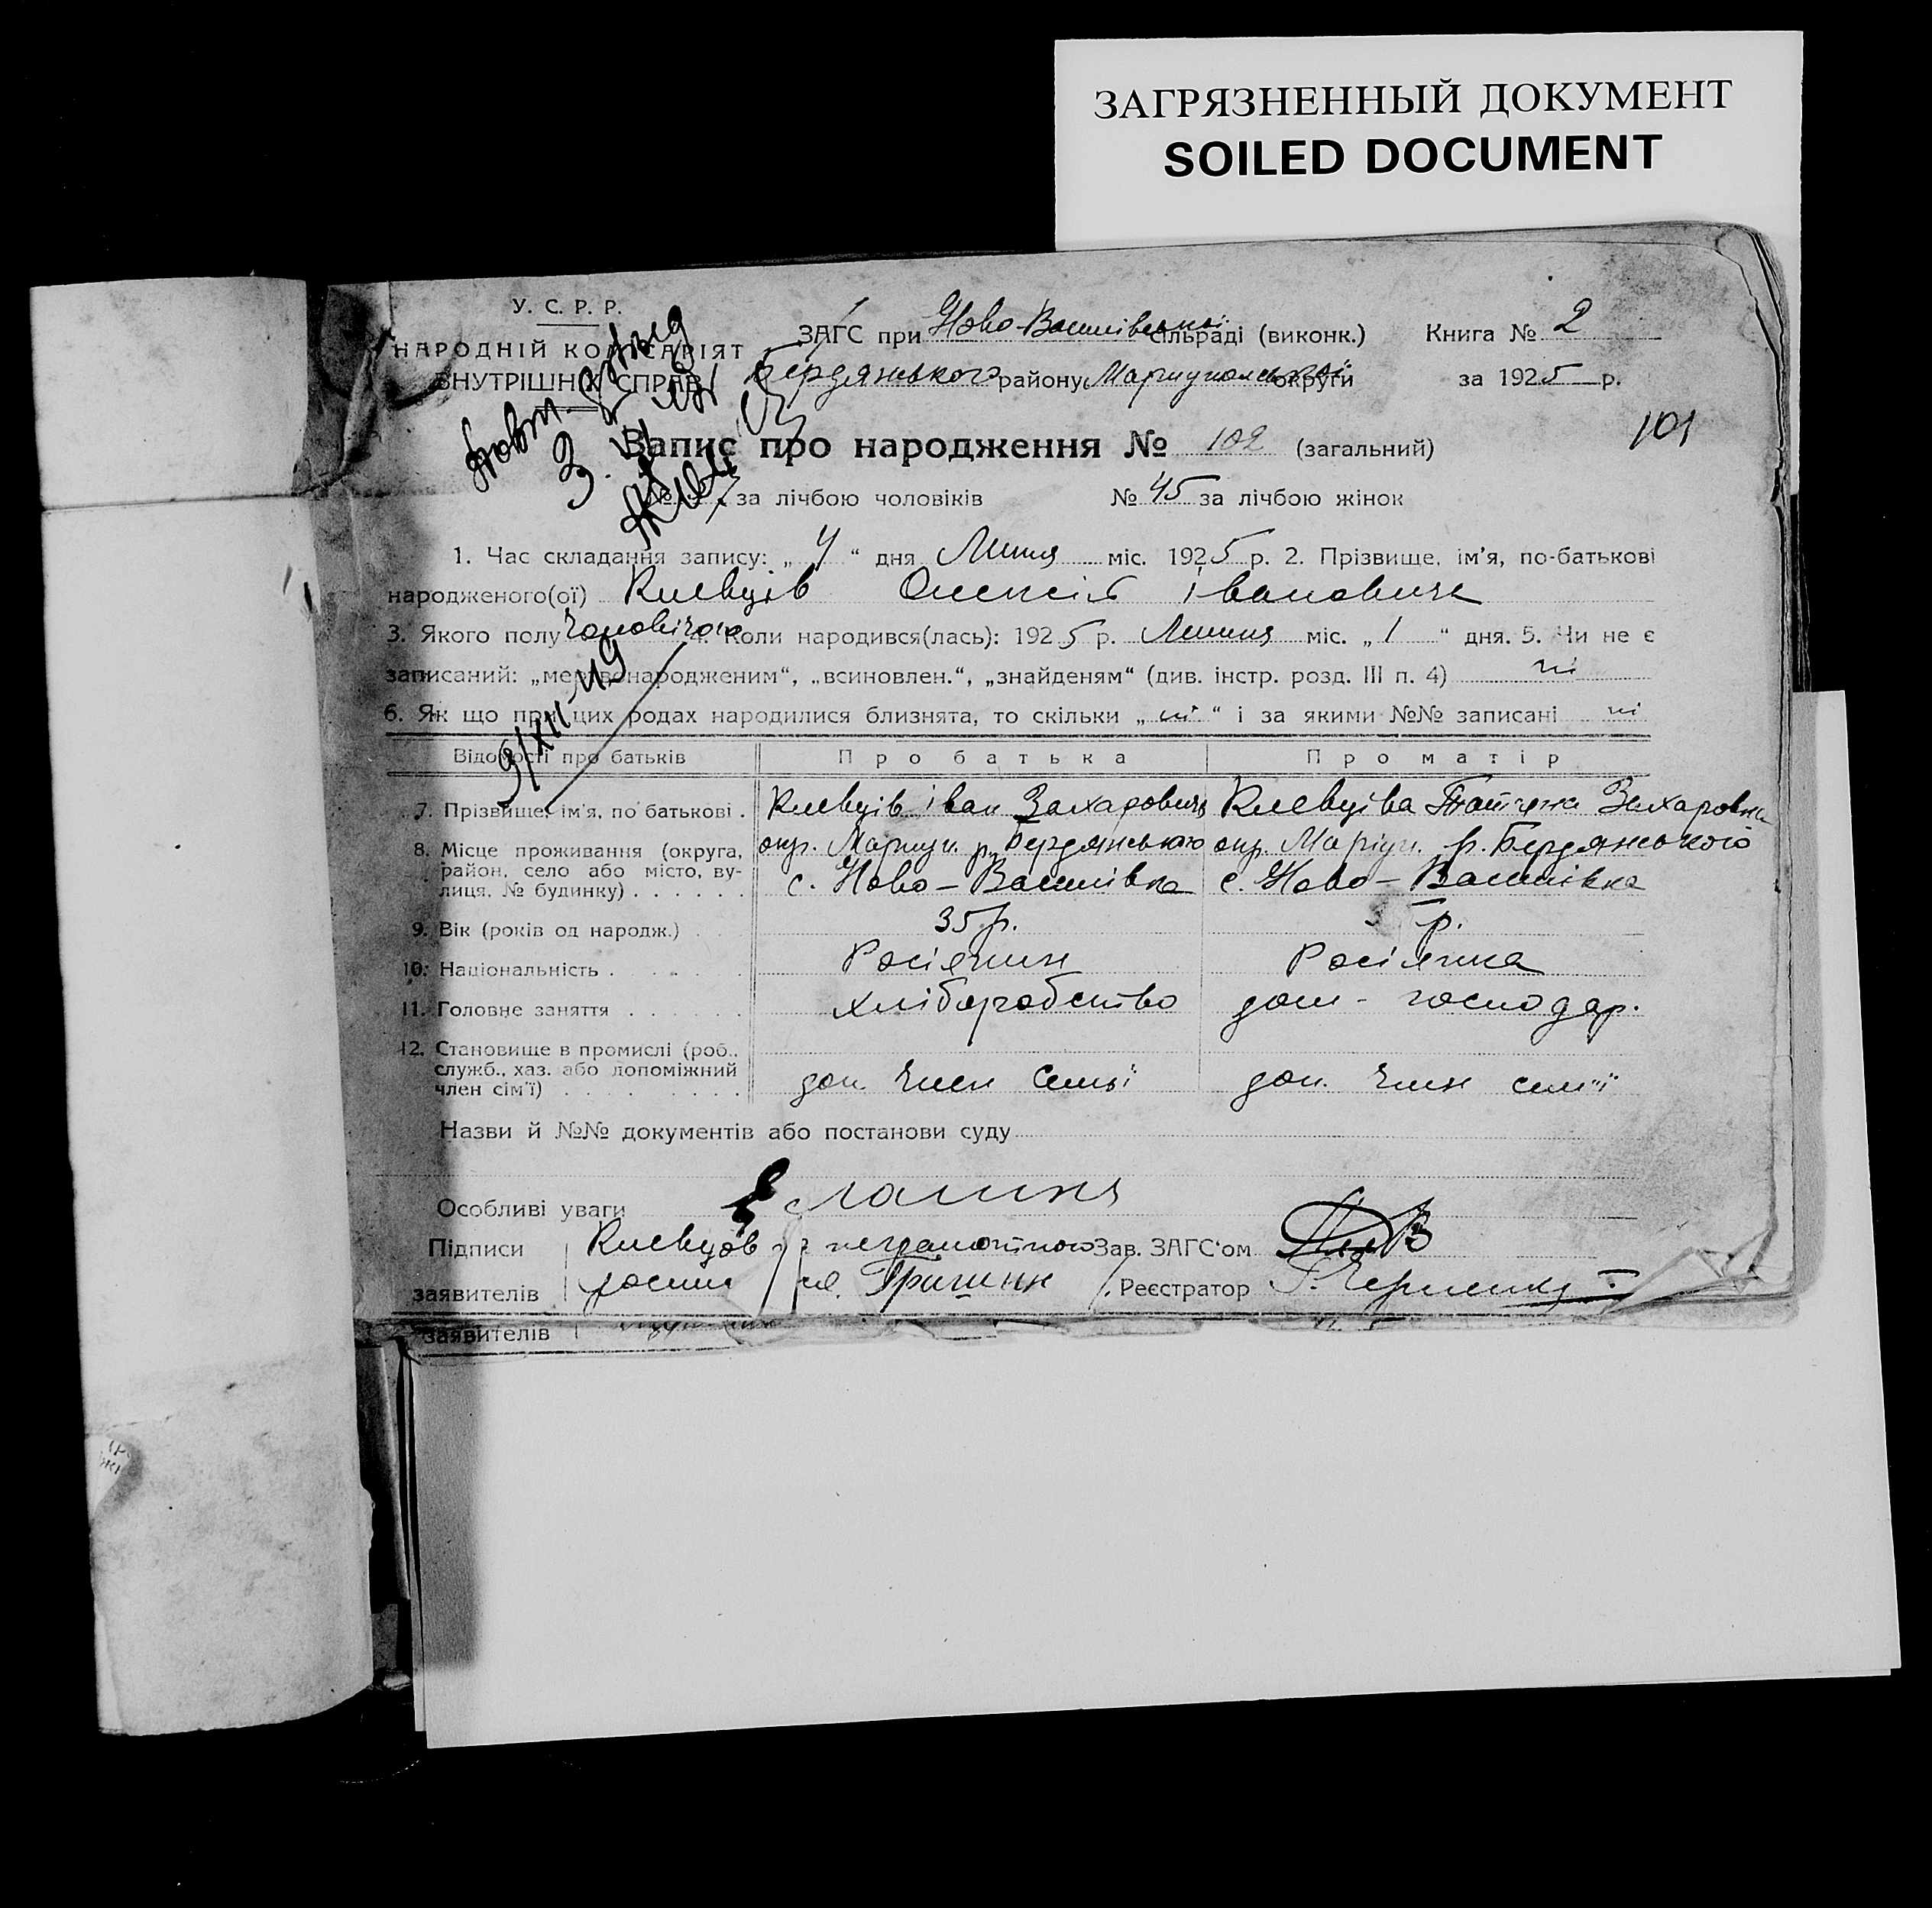 ЗАГРЯЗНЕННЫЙ ДОКУМЕНТ
SOILED DOCUMENT
У. С. Р. Р.
НАРОДНІЙ КОМІСАРІЯТ
ВНУТРІШНІХ СПРАВ
ЗАГС при Ново-Василівської сільраді (виконк.) Книга № 2
Бердянського району Маріупольської округи за 1925 р.
101
Запис про народження № 102 (загальний)
№ за лічбою чоловіків № 45 за лічбою жінок
1. Час складання запису: „ 4 “ дня Липня міс. 1925 р. 2. Прізвище, ім'я, по-батькові
народженого(ої) Киевців Олексій Іванович
3. Якого полу Чоловічого 4. Коли народився(лась): 1925 р. Липня міс. „ 1 “ дня. 5. Чи не є
записаний: „мертвонародженим“, „всиновлен.“, „знайденям“ (див. інстр. розд. III п. 4) ні
6. Як що при цих родах народилися близнята, то скільки „ ні “ і за якими №№ записані ні
Відомості про батьків Про батька Про матір
7. Прізвище, ім'я, по батькові . Киевців Іван Захарович Киевціва Татяна Захаровна
8. Місце проживання (округа, район, село або місто, вулиця, № будинку) . . . . . . окр. Маріуп. р. Бердянського окр. Маріуп. р. Бердянського
с. Ново-Василівка с. Ново-Василівка
9. Вік (років од народж.) . . 35 р. р.
10. Національність . . . . . Росіянин Росіянка
11. Головне заняття . . . . . . хліборобство дом-господар.
12. Становище в промислі (роб., служб., хаз. або допоміжний член сім'ї) . . . . . . . . доп. член семьї доп. член сем'ї
Назви й №№ документів або постанови суду
Особливі уваги
Підписи Киевцов неграмотного Зав. ЗАГС'ом
заявителів Гришин Реєстратор
заявителів